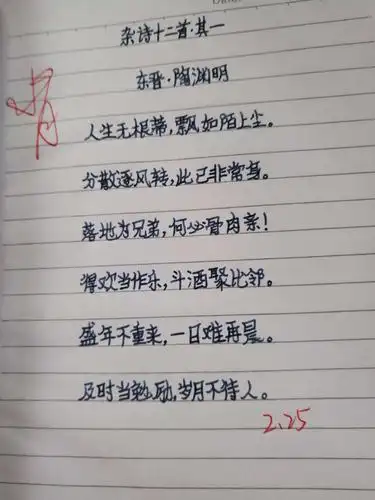 杂诗十二首·其一
东晋·陶渊明
人生无根蒂,飘如陌上尘。
分散逐风转,此已非常身。
落地为兄弟,何必骨肉亲!
得欢当作乐,斗酒聚比邻。
盛年不重来,一日难再晨。
及时当勉励,岁月不待人。
2.25